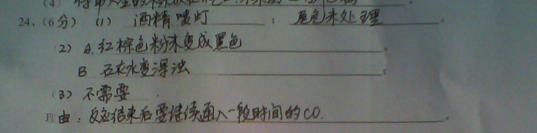 24、(6分) (1) 酒精喷灯 ; 尾气未处理
(2) A 红棕色粉末变成黑色 ;
B 石灰水变浑浊 ;
(3) 不需要
理由: 反应结束后要继续通入一段时间的CO.